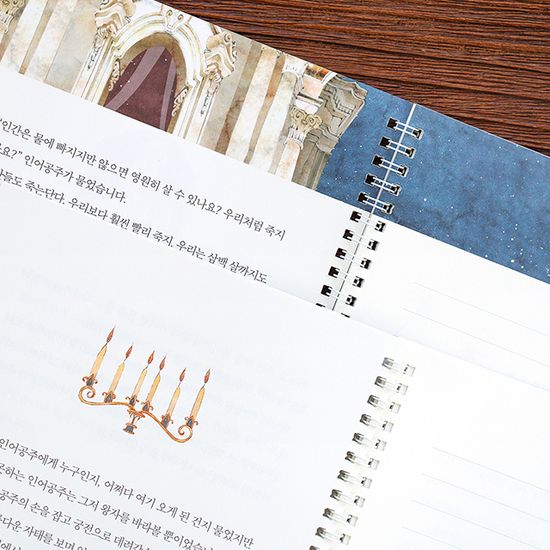 "인간은 물에 빠지지만 않으면 영원히 살 수 있나요? 우리처럼 죽지
요?" 인어공주가 물었습니다.
들도 죽는단다. 우리보다 훨씬 빨리 죽지. 우리는 삼백 살까지도
인어공주에게 누구인지, 어쩌다 여기 오게 된 건지 물었지만
못하는 인어공주는 그저 왕자를 바라볼 뿐이었습니
공주의 손을 잡고 궁전으로 데려갔
다운 자태를 보며